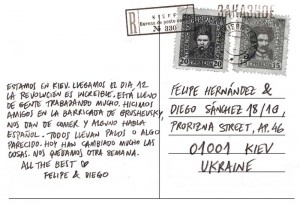 KIEFF
R
Bureau de poste
ЗАКАЗНОЕ
20 20
15
ESTAMOS EN KIEV. LLEGAMOS EL DIA, 12
LA REVOLUCIÓN ES INCREÍBLE. ESTÁ LLENO
DE GENTE TRABAJANDO MUCHO. HICIMOS
AMIGOS EN LA BARRICADA DE GRUSHEVSKY,
NOS DAN DE COMER Y ALGUIEN HABLA
ESPAÑOL. TODOS LLEVAN PALOS O ALGO
PARECIDO. HOY HAN CAMBIADO MUCHO LAS
COSAS. NOS QUEDAMOS OTRA SEMANA.
ALL THE BEST
FELIPE & DIEGO
FELIPE HERNÁNDEZ &
DIEGO SÁNCHEZ 18/19,
PRORIZNA STREET, AP. 46
01001 KIEV
UKRAINE